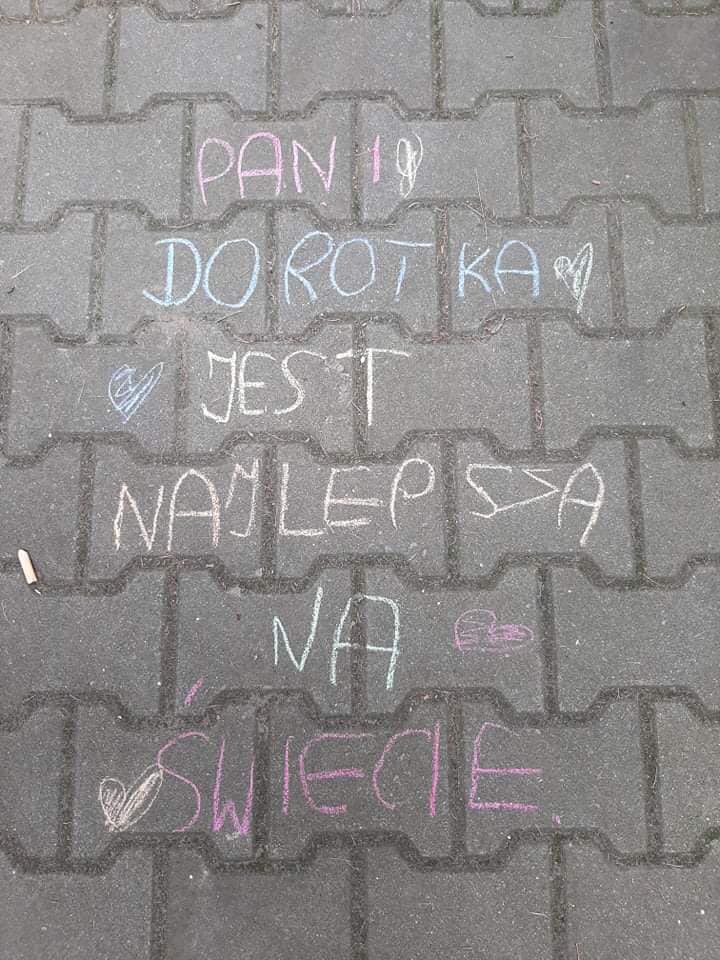 PANI
DOROTKA
JEST
NAJLEPSZA
NA
ŚWIECIE.